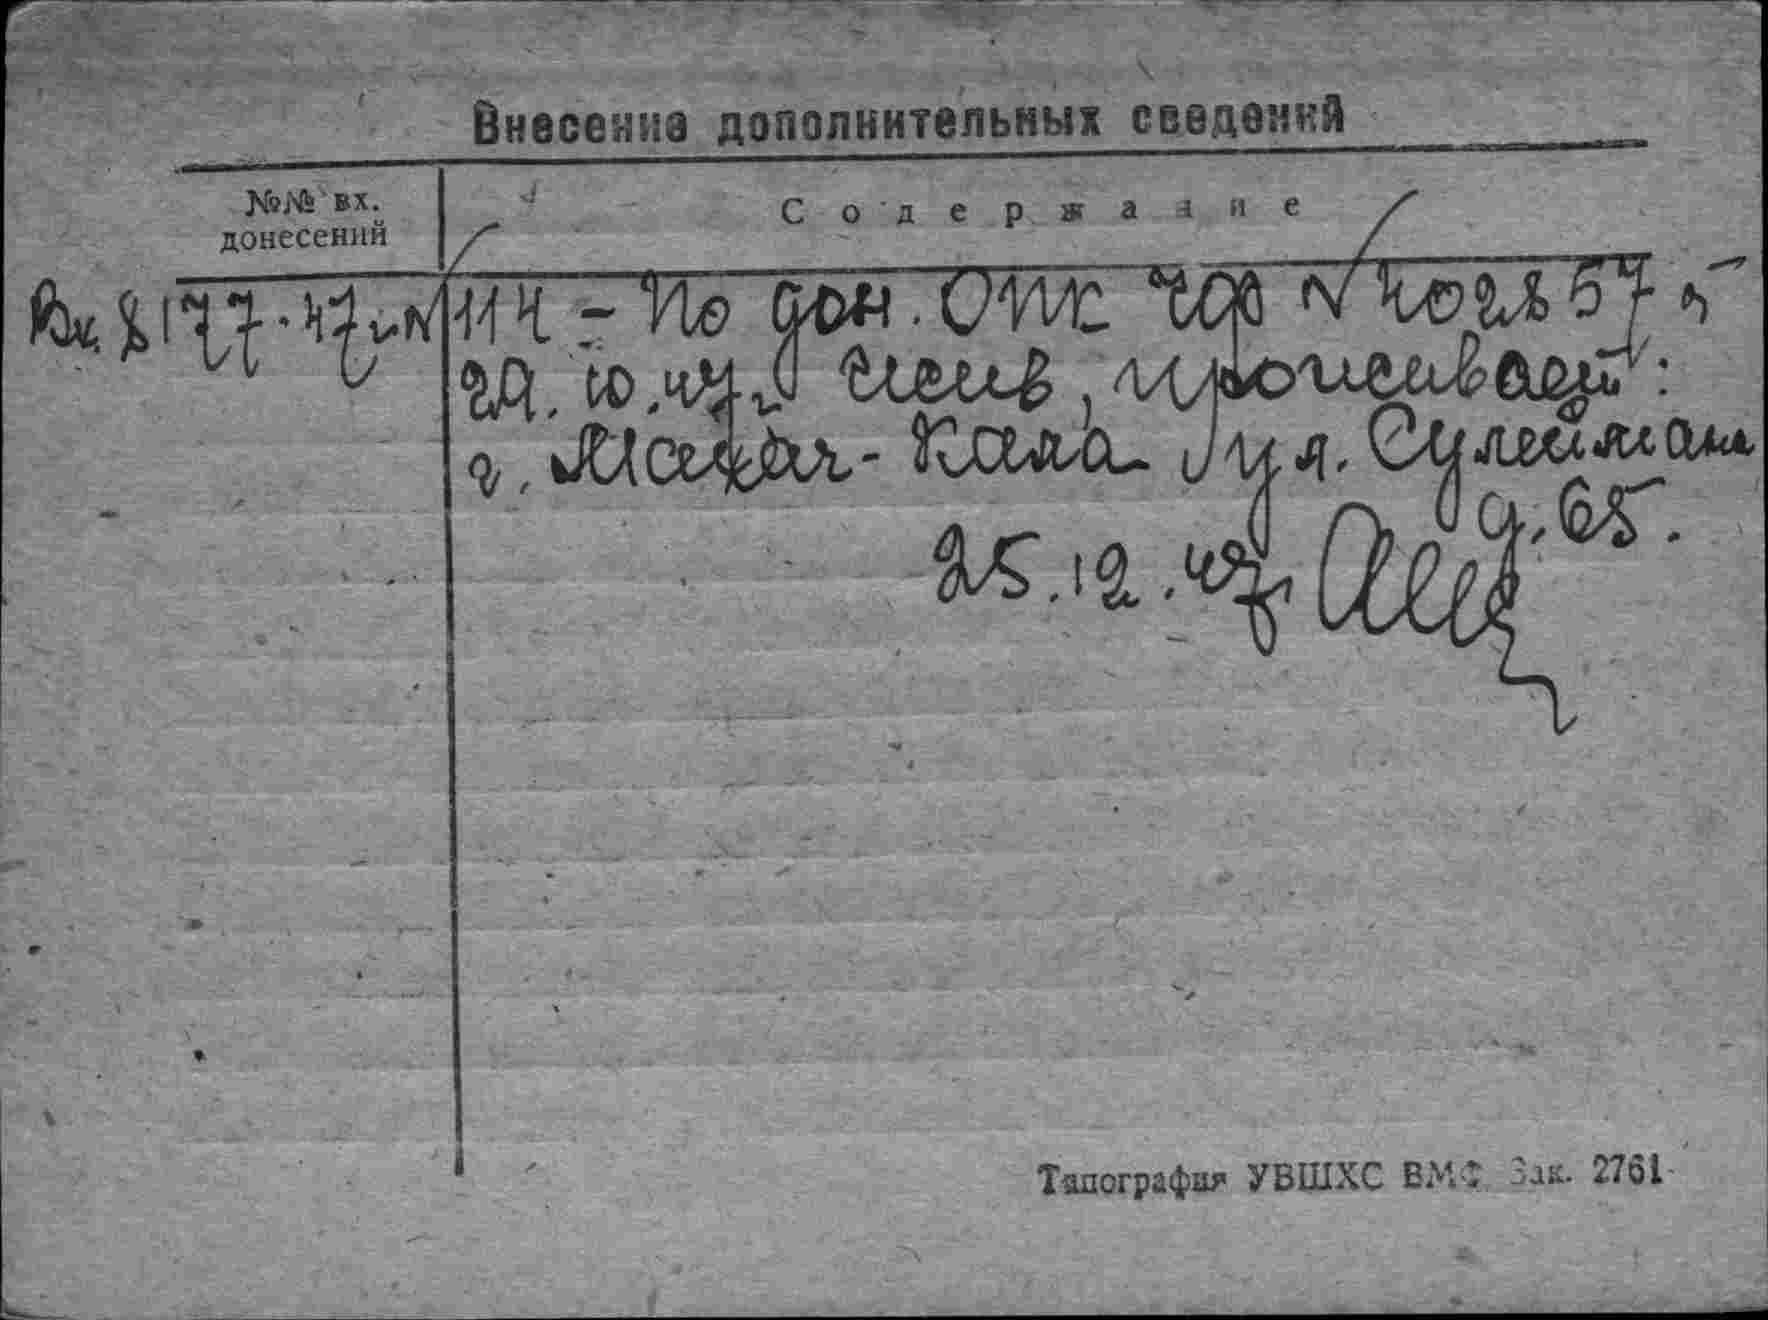 Внесение дополнительных сведений
№№ вх. донесений
Содержание
Вх. 8177-47г. № 114 - По дон. ОПК ЧФ № 402857 от
10.47г. жив, проживает:
г. Махач-Кала ул. Сулеймана
д. 65.
25.12.47г.
Типография УВШХС ВМФ Зак. 2761